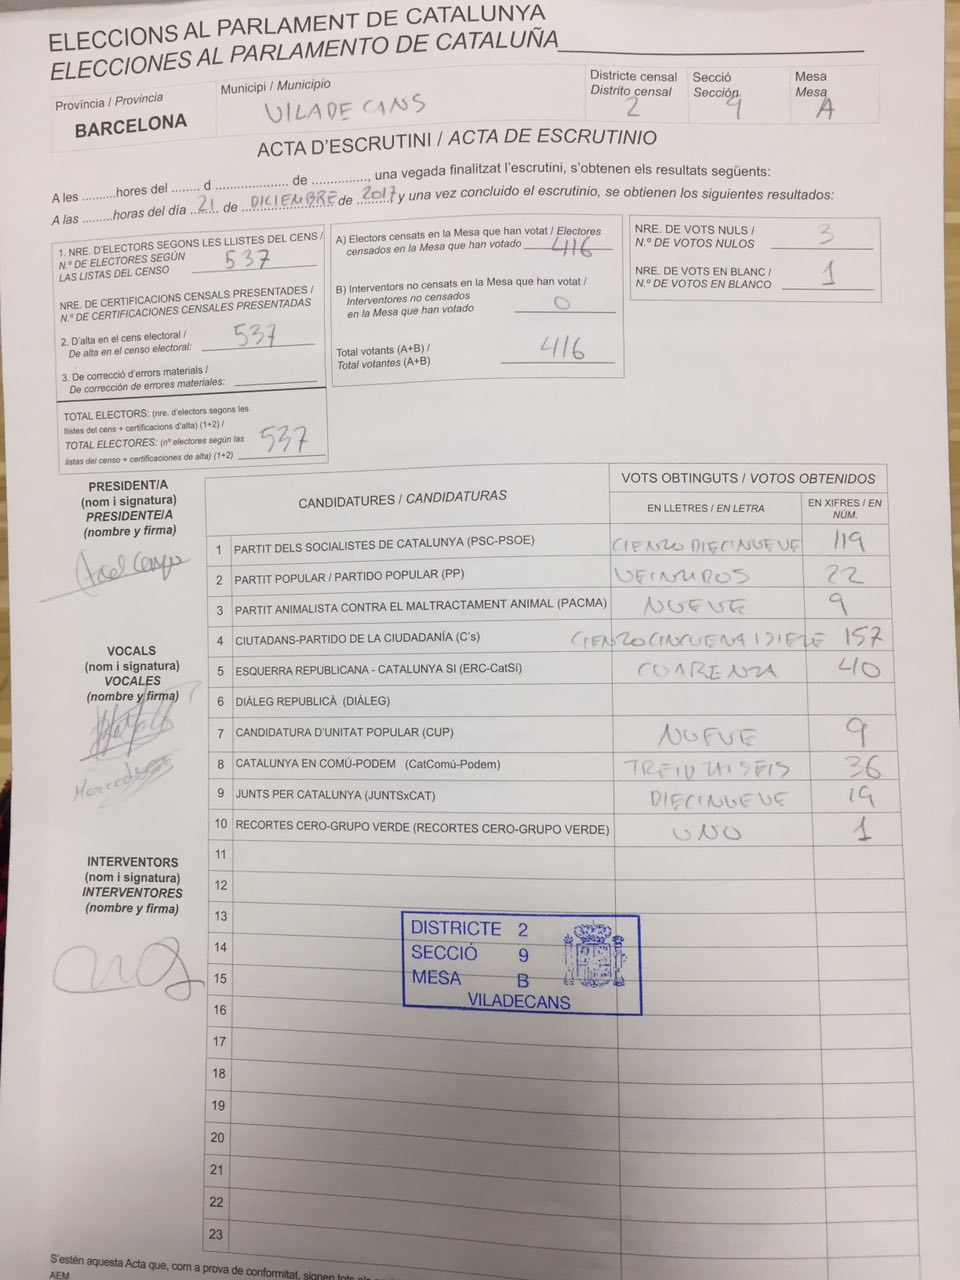 ELECCIONS AL PARLAMENT DE CATALUNYA
ELECCIONES AL PARLAMENTO DE CATALUÑA
Província / Provincia
BARCELONA
Municipi / Municipio
VILADECANS
Districte censal
Distrito censal
2
Secció
Sección
9
Mesa
Mesa
A
ACTA D'ESCRUTINI / ACTA DE ESCRUTINIO
A les ..........hores del ........ d ..................... de ..............., una vegada finalitzat l'escrutini, s'obtenen els resultats següents:
A las .........horas del día 21 de DICIEMBRE de 2017 y una vez concluido el escrutinio, se obtienen los siguientes resultados:
1. NRE. D'ELECTORS SEGONS LES LLISTES DEL CENS /
N.º DE ELECTORES SEGÚN
LAS LISTAS DEL CENSO
537
NRE. DE CERTIFICACIONS CENSALS PRESENTADES /
N.º DE CERTIFICACIONES CENSALES PRESENTADAS
2. D'alta en el cens electoral /
De alta en el censo electoral:
537
3. De correcció d'errors materials /
De corrección de errores materiales:
TOTAL ELECTORS: (nre. d'electors segons les
llistes del cens + certificacions d'alta) (1+2) /
TOTAL ELECTORES: (nº electores según las
listas del censo + certificaciones de alta) (1+2)
537
A) Electors censats en la Mesa que han votat / Electores
censados en la Mesa que han votado
416
B) Interventors no censats en la Mesa que han votat /
Interventores no censados
en la Mesa que han votado
0
Total votants (A+B) /
Total votantes (A+B)
416
NRE. DE VOTS NULS /
N.º DE VOTOS NULOS
3
NRE. DE VOTS EN BLANC /
N.º DE VOTOS EN BLANCO
1
PRESIDENT/A
(nom i signatura)
PRESIDENTE/A
(nombre y firma)
VOCALS
(nom i signatura)
VOCALES
(nombre y firma)
INTERVENTORS
(nom i signatura)
INTERVENTORES
(nombre y firma)
CANDIDATURES / CANDIDATURAS
VOTS OBTINGUTS / VOTOS OBTENIDOS
EN LLETRES / EN LETRA
EN XIFRES / EN
NÚM.
1 PARTIT DELS SOCIALISTES DE CATALUNYA (PSC-PSOE) CIENTO DIECINUEVE 119
2 PARTIT POPULAR / PARTIDO POPULAR (PP) VEINTIDOS 22
3 PARTIT ANIMALISTA CONTRA EL MALTRACTAMENT ANIMAL (PACMA) NUEVE 9
4 CIUTADANS-PARTIDO DE LA CIUDADANÍA (C's) CIENTO CINCUENTA I SIETE 157
5 ESQUERRA REPUBLICANA - CATALUNYA SI (ERC-CatSí) CUARENTA 40
6 DIÀLEG REPUBLICÀ (DIÀLEG)
7 CANDIDATURA D'UNITAT POPULAR (CUP) NUEVE 9
8 CATALUNYA EN COMÚ-PODEM (CatComú-Podem) TREINTAISEIS 36
9 JUNTS PER CATALUNYA (JUNTSxCAT) DIECINUEVE 19
10 RECORTES CERO-GRUPO VERDE (RECORTES CERO-GRUPO VERDE) UNO 1
11
12
13
14
15
16
17
18
19
20
21
22
23
DISTRICTE 2
SECCIÓ 9
MESA B
VILADECANS
S'estén aquesta Acta que, com a prova de conformitat, signen tots els
AEM